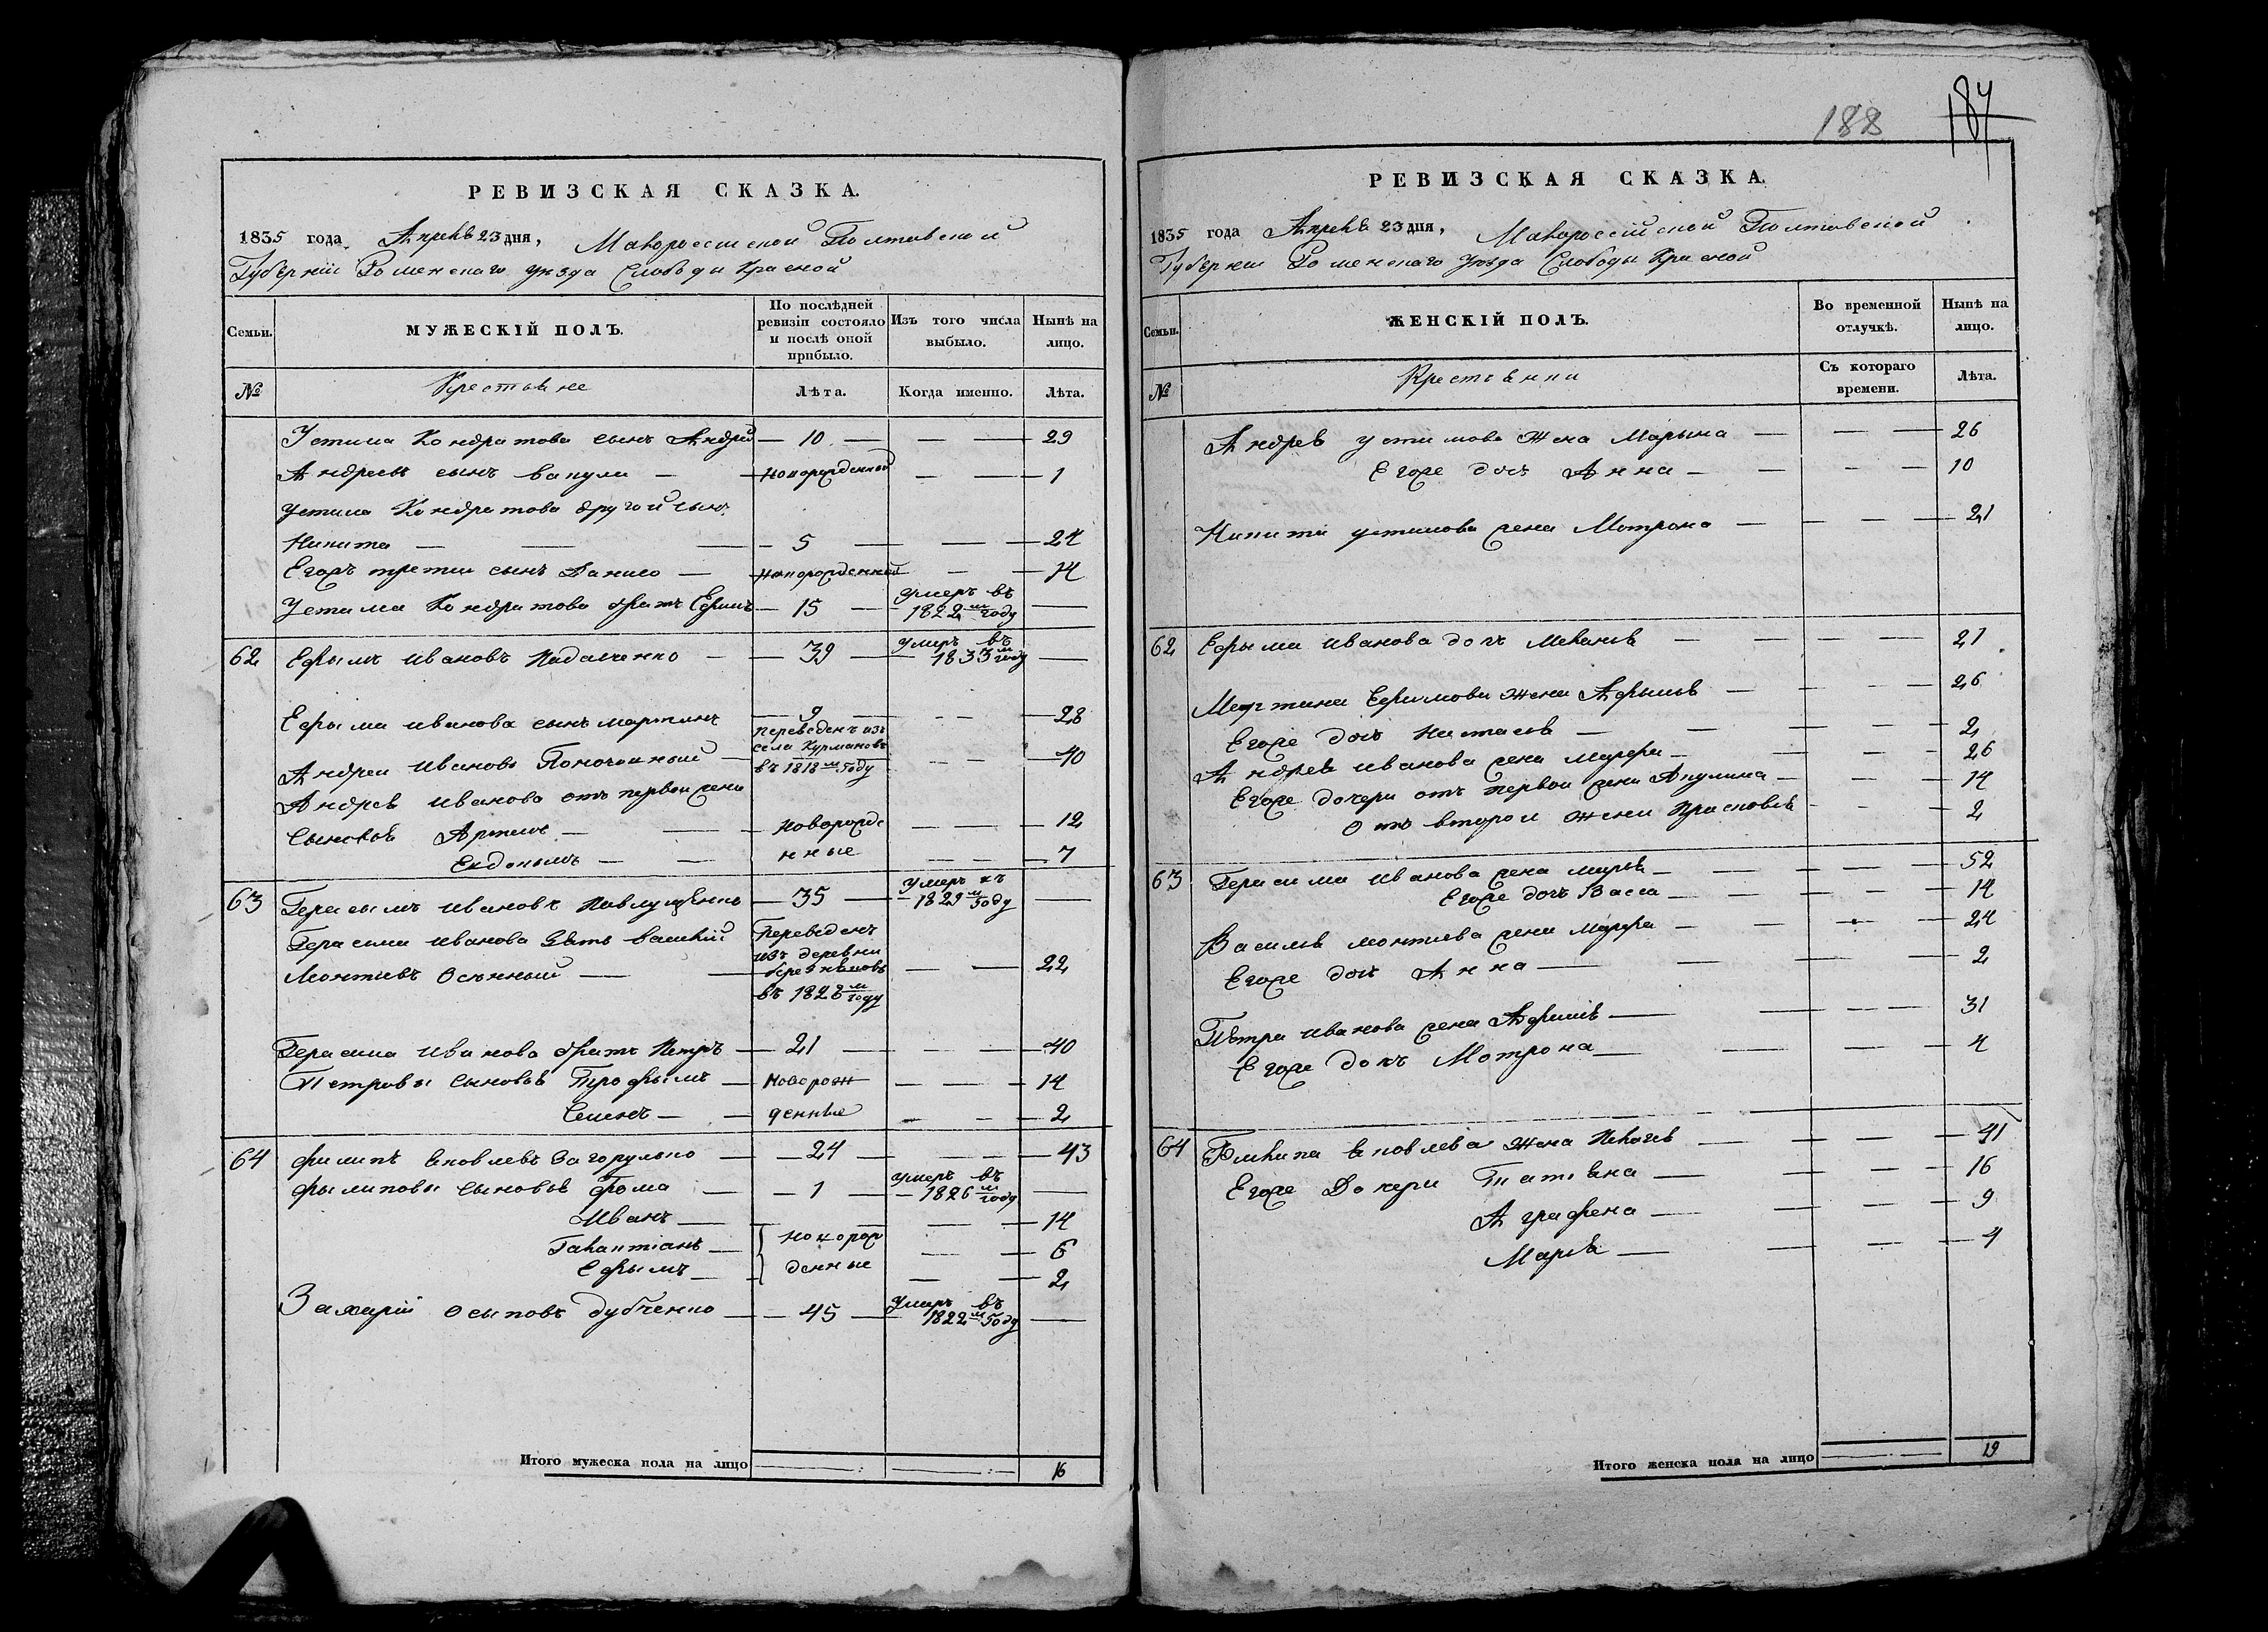 РЕВИЗСКАЯ СКАЗКА.
1835 года Апреля 23 дня, Малороссийской Полтавской
Губернии Роменскаго уезда Слободы Красной
Семьи.
МУЖЕСКІЙ ПОЛЪ.
По послѣдней ревизіи состояло и послѣ оной прибыло.
Изъ того числа выбыло.
Нынѣ на лицо.
№
Крестьяне
Лѣта.
Когда именно.
Лѣта.
Устима Кондратова сынъ Андрей — 10 — — — 29
Андреевъ сынъ — новорожденной — — 1
Устима Кондратова другой сынъ
Никита — 5 — — — 24
Егоже третии сынъ Данило — новорожденной — — 14
Устима Кондратова братъ Ефимъ — 15 — умеръ въ 1822м году —
62 Ефымъ Ивановъ — 39 — умеръ въ 1833м году —
Ефыма Иванова сынъ Мартинъ — 9 — — — 28
Андреи Ивановъ — переведенъ изъ села Курмановъ въ 1818м году — — 40
Андрея Иванова отъ первои жены
Сыновья Артемъ — новорожде — — 12
Евдокымъ — нные — — 7
63 Герасымъ Ивановъ Павлущенко — 35 — умеръ въ 1829м году —
Герасима Иванова зять Василій Переведенъ
изъ деревни
Леонтіевъ Осенный — — — 22
въ 1828м году
Герасима Иванова братъ Петръ — 21 — — — 40
Петровы сыновья Трофымъ — новорож — — 14
Семенъ — денные — — 2
64 Филипъ Яковлевъ Загорулько — 24 — — — 43
Фылиповы сыновья Фома — 1 — умеръ въ 1826м году —
Иванъ — — — 14
Галактіанъ — новорож — — 6
Ефымъ — денные — — 2
Захарій Осыповъ Дубченко — 45 — умеръ въ 1822м году —
Итого мужеска пола на лицо 16
188
187
РЕВИЗСКАЯ СКАЗКА.
1835 года Апреля 23 дня, Малороссійской Полтавской
Губернии Роменскаго уезда Слободы Красной
Семьи.
ЖЕНСКІЙ ПОЛЪ.
Во временной отлучкѣ.
Нынѣ на лицо.
№
Крестьянки
Съ котораго времени.
Лѣта.
Андрея Устимова жена Марына — — — 26
Егоже дочь Анна — — — 10
Никити Устимова жена Мотрона — — — 21
62 Ефыма Иванова дочь Меланья — — — 21
Мартина Ефимова жена — — — 26
Егоже дочь Наталья — — — 2
Андрея Иванова жена Марфа — — — 26
Егоже дочери отъ первои жены Акулина — — — 14
Отъ второи жены Прасковья — — 2
63 Герасима Иванова жена Марья — — — 52
Егоже дочь Васса — — — 14
Василья Леонтіева жена Марфа — — — 24
Егоже дочь Анна — — — 2
Петра Иванова жена — — — 31
Егоже дочь Мотрона — — — 4
64 Филипа Яковлева жена Пелагея — — — 41
Егоже Дочери Татьяна — — — 16
Аграфена — — — 9
Марья — — — 4
Итого женска пола на лицо 19